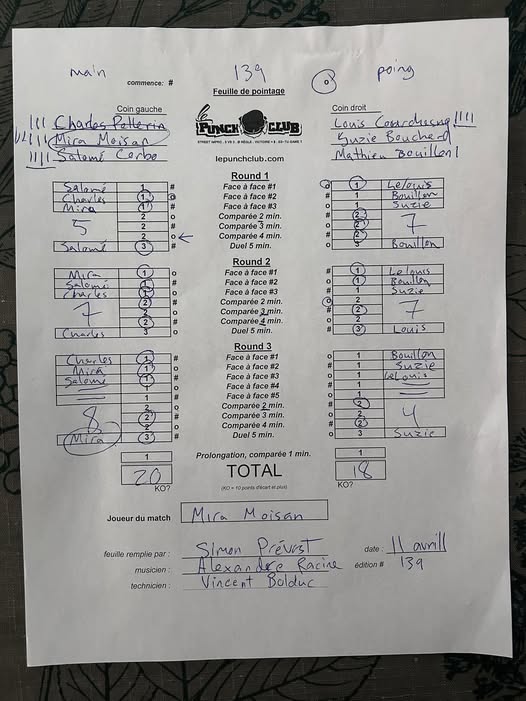 main 139 poing
commence: #
Feuille de pointage
Coin gauche Coin droit
Charles Pellerin
Mira Moisan
Salomé Corbo
Suzie Bouchard
Mathieu Bouillon
PUNCH CLUB
lepunchclub.com
Round 1
Salomé 1 # Face à face #1 o 1 LeLouis
Charles 1 o Face à face #2 # 1 Bouillon
Mira 1 # Face à face #3 o 1 Suzie
2 o Comparée 2 min. # 2
5 2 # Comparée 3 min. o 2 7
2 o Comparée 4 min. # 2
Salomé 3 # Duel 5 min. o 3 Bouillon
Round 2
Mira 1 o Face à face #1 # 1 LeLouis
Salomé 1 # Face à face #2 o 1 Bouillon
Charles 1 o Face à face #3 # 1 Suzie
2 # Comparée 2 min. o 2
7 2 o Comparée 3 min. # 2 7
2 # Comparée 4 min. o 2
Charles 3 o Duel 5 min. # 3 Louis
Round 3
Charles 1 # Face à face #1 o 1 Bouillon
Mira 1 o Face à face #2 # 1 Suzie
Salomé 1 # Face à face #3 o 1 LeLouis
1 o Face à face #4 # 1
1 # Face à face #5 o 1
2 o Comparée 2 min. # 2
8 2 # Comparée 3 min. o 2 4
2 o Comparée 4 min. # 2
Mira 3 # Duel 5 min. o 3 Suzie
1 Prolongation, comparée 1 min. 1
20 TOTAL 18
KO? (KO = 10 points d'écart et plus) KO?
Joueur du match Mira Moisan
feuille remplie par : Simon Prévost date : 11 avril
musicien : Alexandre Racine édition # 139
technicien : Vincent Bolduc